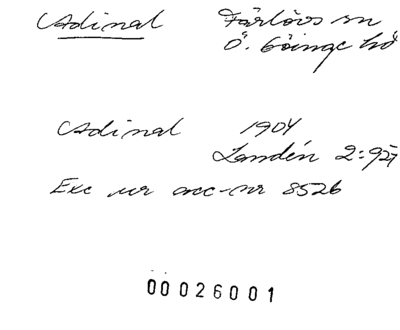 Adinal Färlövs sn
Ö. Göinge hd
Adinal 1904
Landén 2:927
Exc ur acc-nr 8526
00026001